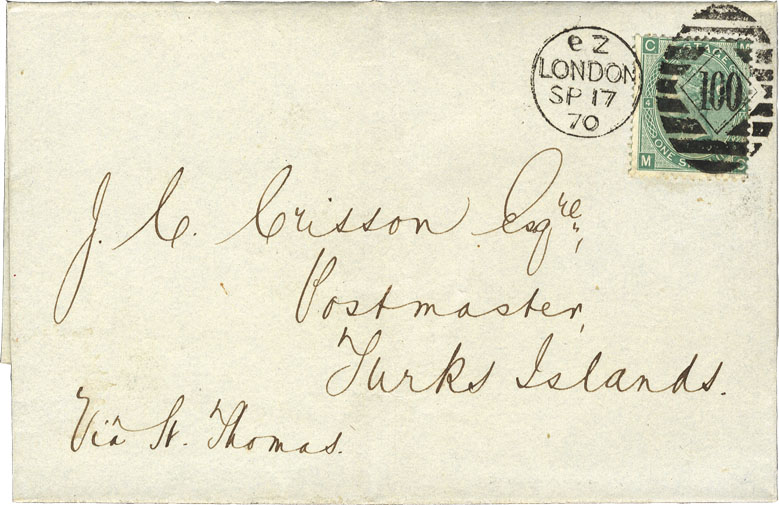 e Z
LONDON
SP 17
70
C
POSTAGE
4
100
ONE S
M
J. C. Crisson Esqre,
Postmaster,
Turks Islands.
Via St. Thomas.